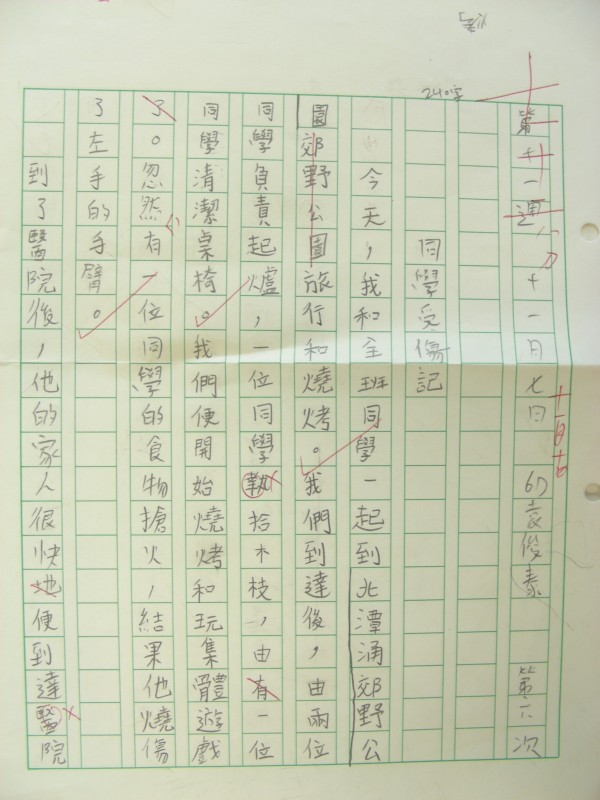 第十一週 十一月七日 6D 袁俊泰 第六次
同學受傷記
今天，我和全班同學一起到北潭涌郊野公
園郊野公園旅行和燒烤。我們到達後，由兩位
同學負責起爐，一位同學執拾木枝，由有一位
同學清潔桌椅。我們便開始燒烤和玩集體遊戲
了。忽然有一位同學的食物搶火，結果他燒傷
了左手的手臂。
到了醫院後，他的家人很快地便到達醫院
240字
十一月七